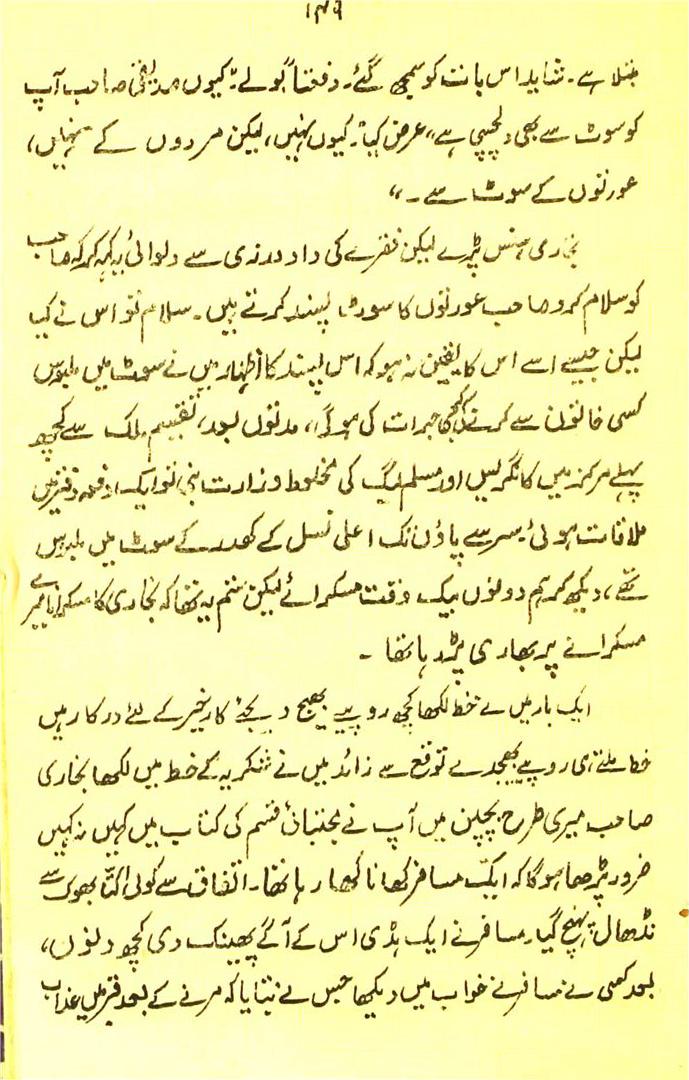 ۱۴۹
مبتلا ہے۔ شاید اس بات کو سمجھ گئے۔ دفعتاً بولے "کیوں صدیقی صاحب آپ
کو سوٹ سے بھی دلچسپی ہے" عرض کیا "کیوں نہیں، لیکن مردوں کے نہیں،
عورتوں کے سوٹ سے۔"
بخاری ہنس پڑے لیکن فقرے کی داد درزی سے دلوائی یہ کہہ کر کہ صاحب
کو سلام کرو صاحب عورتوں کا سوٹ پسند کرتے ہیں۔ سلام تو اس نے کیا
لیکن جیسے اسے اس کا یقین نہ ہو کہ اس پسند کا اظہار میں نے سوٹ میں ملبوس
کسی خاتون سے کرنے کی کبھی جرات کی ہوگی، مدتوں بعد، تقسیم ملک سے کچھ
پہلے مرکز میں کانگریس اور مسلم لیگ کی مخلوط وزارت بنی تو ایک دفعہ دفتر میں
ملاقات ہوئی۔ سر سے پاؤں تک اعلی نسل کے کھدر کے سوٹ میں ملبوس
تھے، دیکھ کر ہم دونوں بیک وقت مسکرائے لیکن ستم یہ تھا کہ بخاری کا مسکرانا میرے
مسکرانے پر بھاری پڑ رہا تھا۔
ایک بار میں نے خط لکھا کچھ روپیے بھیج دیجئے کارخیر کے لئے درکار ہیں
خط ملتے ہی روپیے بھیجدے توقع سے زائد میں نے شکریہ کے خط میں لکھا بخاری
صاحب میری طرح بچپن میں آپ نے مجتبائی قسم کی کتاب میں کہیں نہ کہیں
ضرور پڑھا ہوگا کہ ایک مسافر کھانا کھا رہا تھا۔ اتفاق سے کوئی کتا بھوک سے
نڈھال پہنچ گیا۔ مسافر نے ایک ہڈی اس کے آگے پھینک دی کچھ دنوں،
بعد کسی نے مسافر نے خواب میں دیکھا جس نے بتایا کہ مرنے کے بعد قبر میں عذاب